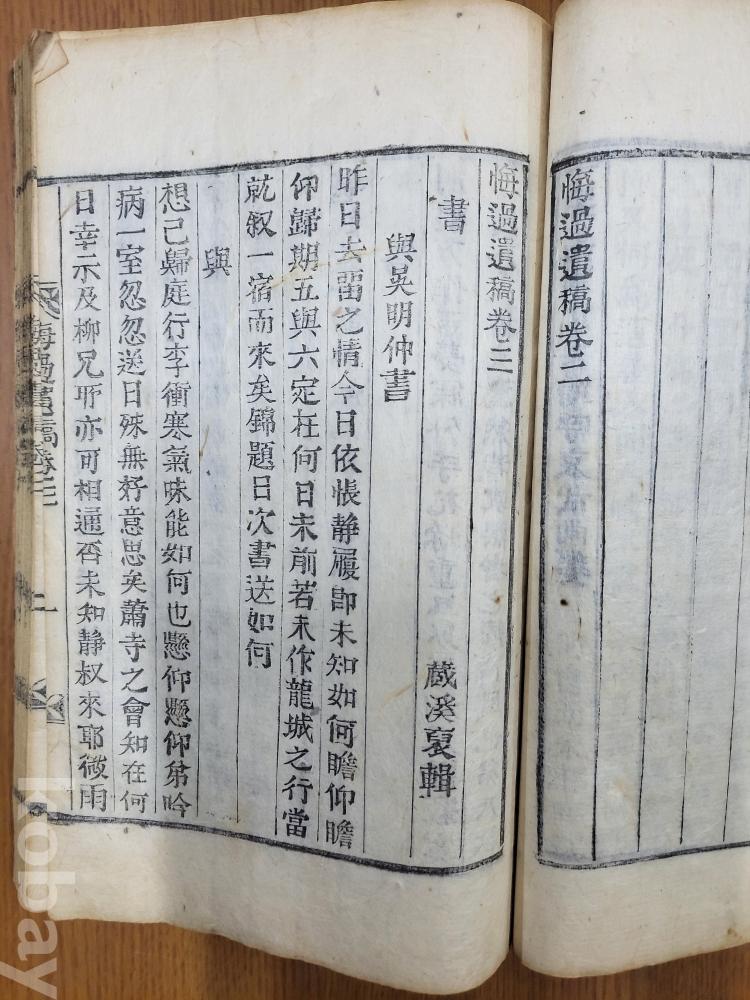 悔過遺稿卷二
悔過遺稿卷三
書
蔵溪裒輯
與吳明仲書
昨日去留之情今日依悵静履卽未知如何瞻仰瞻
仰歸期五與六定在何日未前若未作龍城之行當
就叙一宿而來矣錦題呂次書送如何
與
想已歸庭行李衝寒氣味能如何也懸仰懸仰弟吟
病一室忽忽送日殊無好意思矣蕭寺之會知在何
日幸示及柳兄所亦可相通否未知静叔來耶微雨
悔過遺稿卷三
一
kobay